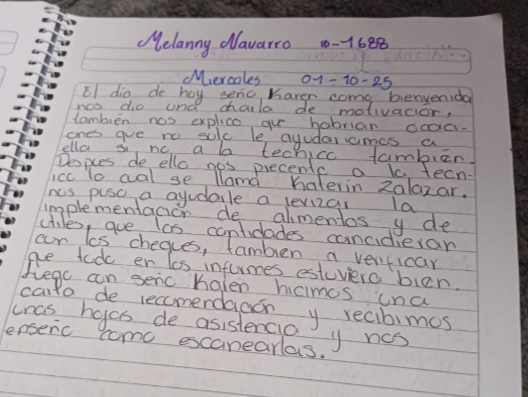 Melanny Navarro 10-1688
Miercoles 01-10-25
El dia de hoy señc Karen como bienvenida
nos dio una charla de motivacion,
también nos explico que habrian ocaci-
ones que no solc le ayudariamos a
ella si no a la tecnicc también.
Despues de ello nos precento a la tecn-
icc lo cual se llama Katerin Zalazar.
nos puso a ayudarle a revizar la
implementación de alimentos y de
utiles, que las cantidades concidieran
con lcs cheques, tambien a verificar
que todc en lcs informes estuviera bien.
luego con señc Karen hicimcs una
carta de recomendación y recibimcs
unas hojas de asistencia y ncs
enseñc como escanearlas.